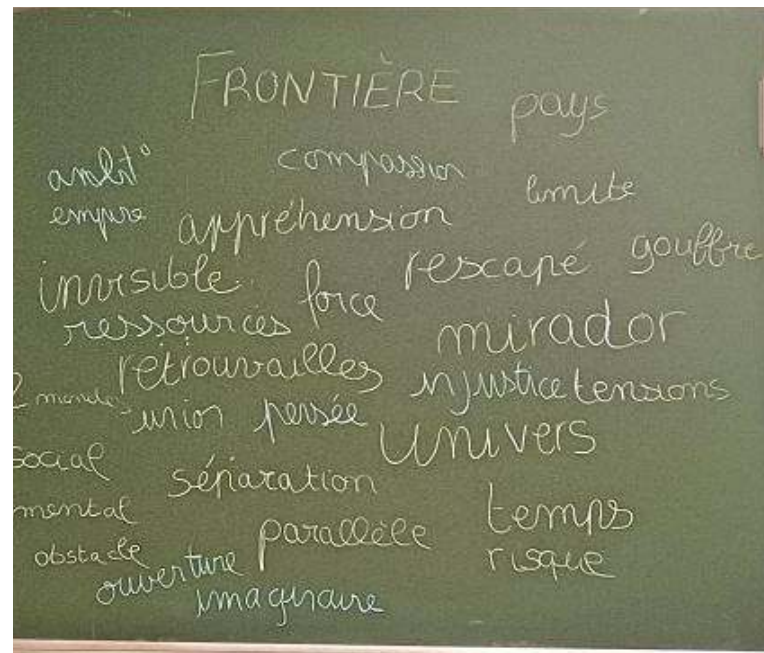 FRONTIÈRE pays
ambit° compassion limite
empire appréhension
invisible force rescapé gouffre
ressources mirador
retrouvailles injustice tensions
2 mondes union pensée univers
social séparation
mental temps
obstacle parallèle risque
ouverture
imaginaire